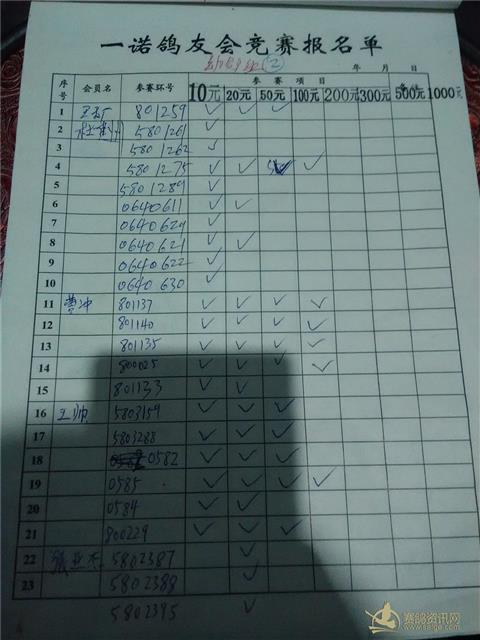 一诺鸽友会竞赛报名单
(2)
年 月 日
序号 会员名 参赛环号 参赛项目
10元 20元 50元 100元 200元 300元 500元 1000元
1 801259 ✓ ✓ ✓ ✓
2 5801261 ✓
3 5801262 ✓
4 5801275 ✓ ✓ ✓ ✓
5 5801289 ✓
6 0640611 ✓ ✓
7 0640624 ✓
8 0640621 ✓ ✓
9 0640622 ✓
10 0640630 ✓
11 曹冲 801137 ✓ ✓ ✓ ✓
12 801140 ✓ ✓ ✓ ✓
13 801135 ✓ ✓ ✓ ✓
14 800025 ✓ ✓ ✓ ✓
15 801133 ✓ ✓
16 王帅 5803159 ✓ ✓ ✓
17 5803288 ✓ ✓ ✓
18 0582 ✓ ✓ ✓
19 0585 ✓ ✓ ✓ ✓
20 0584 ✓ ✓
21 800229 ✓ ✓ ✓
22 张亚杰 5802387 ✓
23 5802388 ✓
5802395 ✓
赛鸽资讯网
www.saige.com